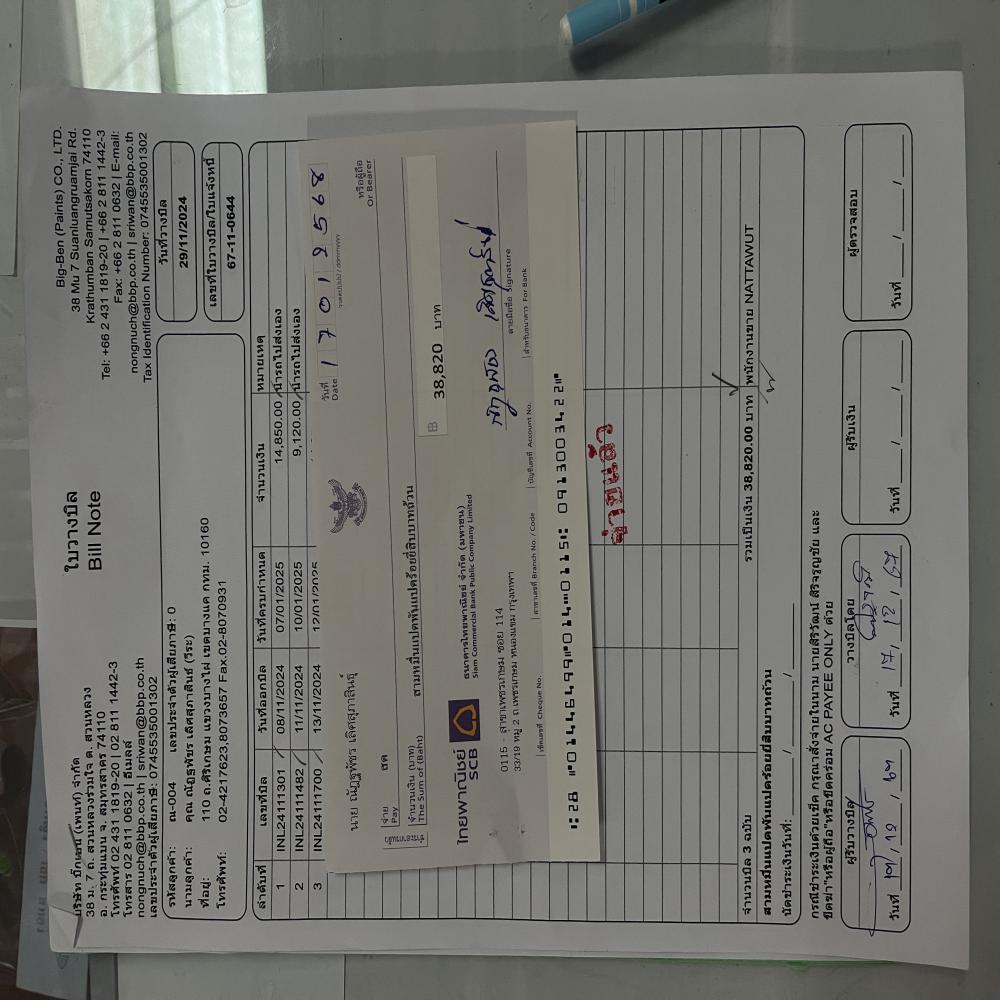 บริษัท บิ๊กเบน (เพนท์) จำกัด
38 ม. 7 ถ. สวนหลวงร่วมใจ ต. สวนหลวง
อ. กระทุ่มแบน จ. สมุทรสาคร 74110
โทรศัพท์ 02 431 1819-20 | 02 811 1442-3
โทรสาร 02 811 0632 | อีเมลล์
nongnuch@bbp.co.th | sriwan@bbp.co.th
เลขประจำตัวผู้เสียภาษี: 0745535001302
ใบวางบิล
Bill Note
Big-Ben (Paints) CO., LTD.
38 Mu 7 Suanluangruamjai Rd.
Krathumban Samutsakorn 74110
Tel: +66 2 431 1819-20 | +66 2 811 1442-3
Fax: +66 2 811 0632 | E-mail:
nongnuch@bbp.co.th | sriwan@bbp.co.th
Tax Identification Number: 0745535001302
รหัสลูกค้า: ณ-004 เลขประจำตัวผู้เสียภาษี: 0
นามลูกค้า: คุณ ณัฏฐพัชร เลิศสุภาสินธ์ (วีระ)
ที่อยู่: 110 ถ.ศิริเกษม แขวงบางไผ่ เขตบางแค กทม. 10160
โทรศัพท์: 02-4217623,8073657 Fax.02-8070931
วันที่วางบิล
29/11/2024
เลขที่ใบวางบิล/ใบแจ้งหนี้
67-11-0644
ลำดับที่ เลขที่บิล วันที่ออกบิล วันที่ครบกำหนด จำนวนเงิน หมายเหตุ
1 INL24111301 08/11/2024 07/01/2025 14,850.00 นำรถไปส่งเอง
2 INL24111482 11/11/2024 10/01/2025 9,120.00 นำรถไปส่งเอง
3 INL24111700 13/11/2024 12/01/2025
วันที่ Date 1 7 0 1 2 5 6 8
นาย ณัฏฐพัชร เลิศสุภาสินธุ์
จ่าย Pay สด หรือผู้ถือ Or Bearer
จำนวนเงิน (บาท) The Sum of (Baht) สามหมื่นแปดพันแปดร้อยยี่สิบบาทถ้วน
฿ 38,820 บาท
ไทยพาณิชย์
SCB
ธนาคารไทยพาณิชย์ จำกัด (มหาชน)
Siam Commercial Bank Public Company Limited
0115 - สาขาเพชรเกษม ซอย 114
33/19 หมู่ 2 ถ.เพชรเกษม หนองแขม กรุงเทพฯ
ลายมือชื่อ Signature
เช็คเลขที่ Cheque No. สาขาเลขที่ Branch No. / Code บัญชีเลขที่ Account No. สำหรับธนาคาร For Bank
จ่ายแล้ว
จำนวนบิล 3 ฉบับ รวมเป็นเงิน 38,820.00 บาท พนักงานขาย NATTAWUT
สามหมื่นแปดพันแปดร้อยยี่สิบบาทถ้วน
นัดชำระเงินวันที่: / /
กรณีชำระเงินด้วยเช็ค กรุณาสั่งจ่ายในนาม นายสิริวัฒน์ สิริจรูญชัย และ
ขีดฆ่า"หรือผู้ถือ"หรือขีดคร่อม AC PAYEE ONLY ด้วย
ผู้รับวางบิล วางบิลโดย ผู้รับเงิน ผู้ตรวจสอบ
วันที่ วันที่ วันที่ / / วันที่ / /